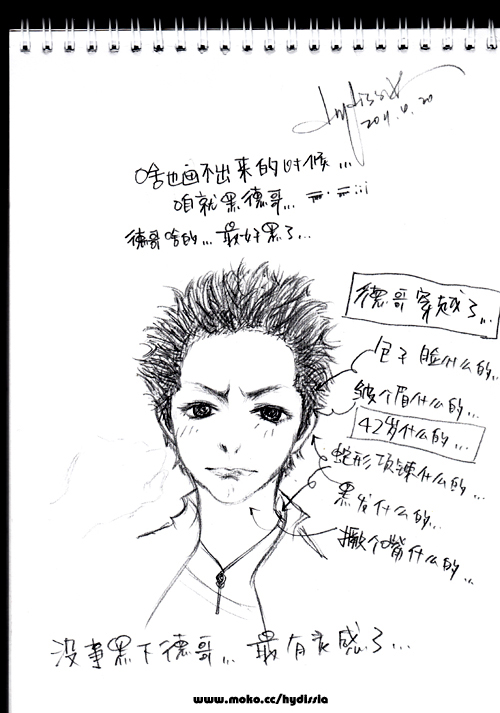 hydissia
2011.4.20
啥也画不出来的时候...
咱就黑德哥... =.=;;;
德哥啥的... 最好黑了...
德哥穿越了...
包子脸什么的...
皱个眉什么的...
42岁什么的...
蛇形项链什么的...
黑发什么的...
撇个嘴什么的...
没事黑下德哥... 最有爱感了...
www.moko.cc/hydissia